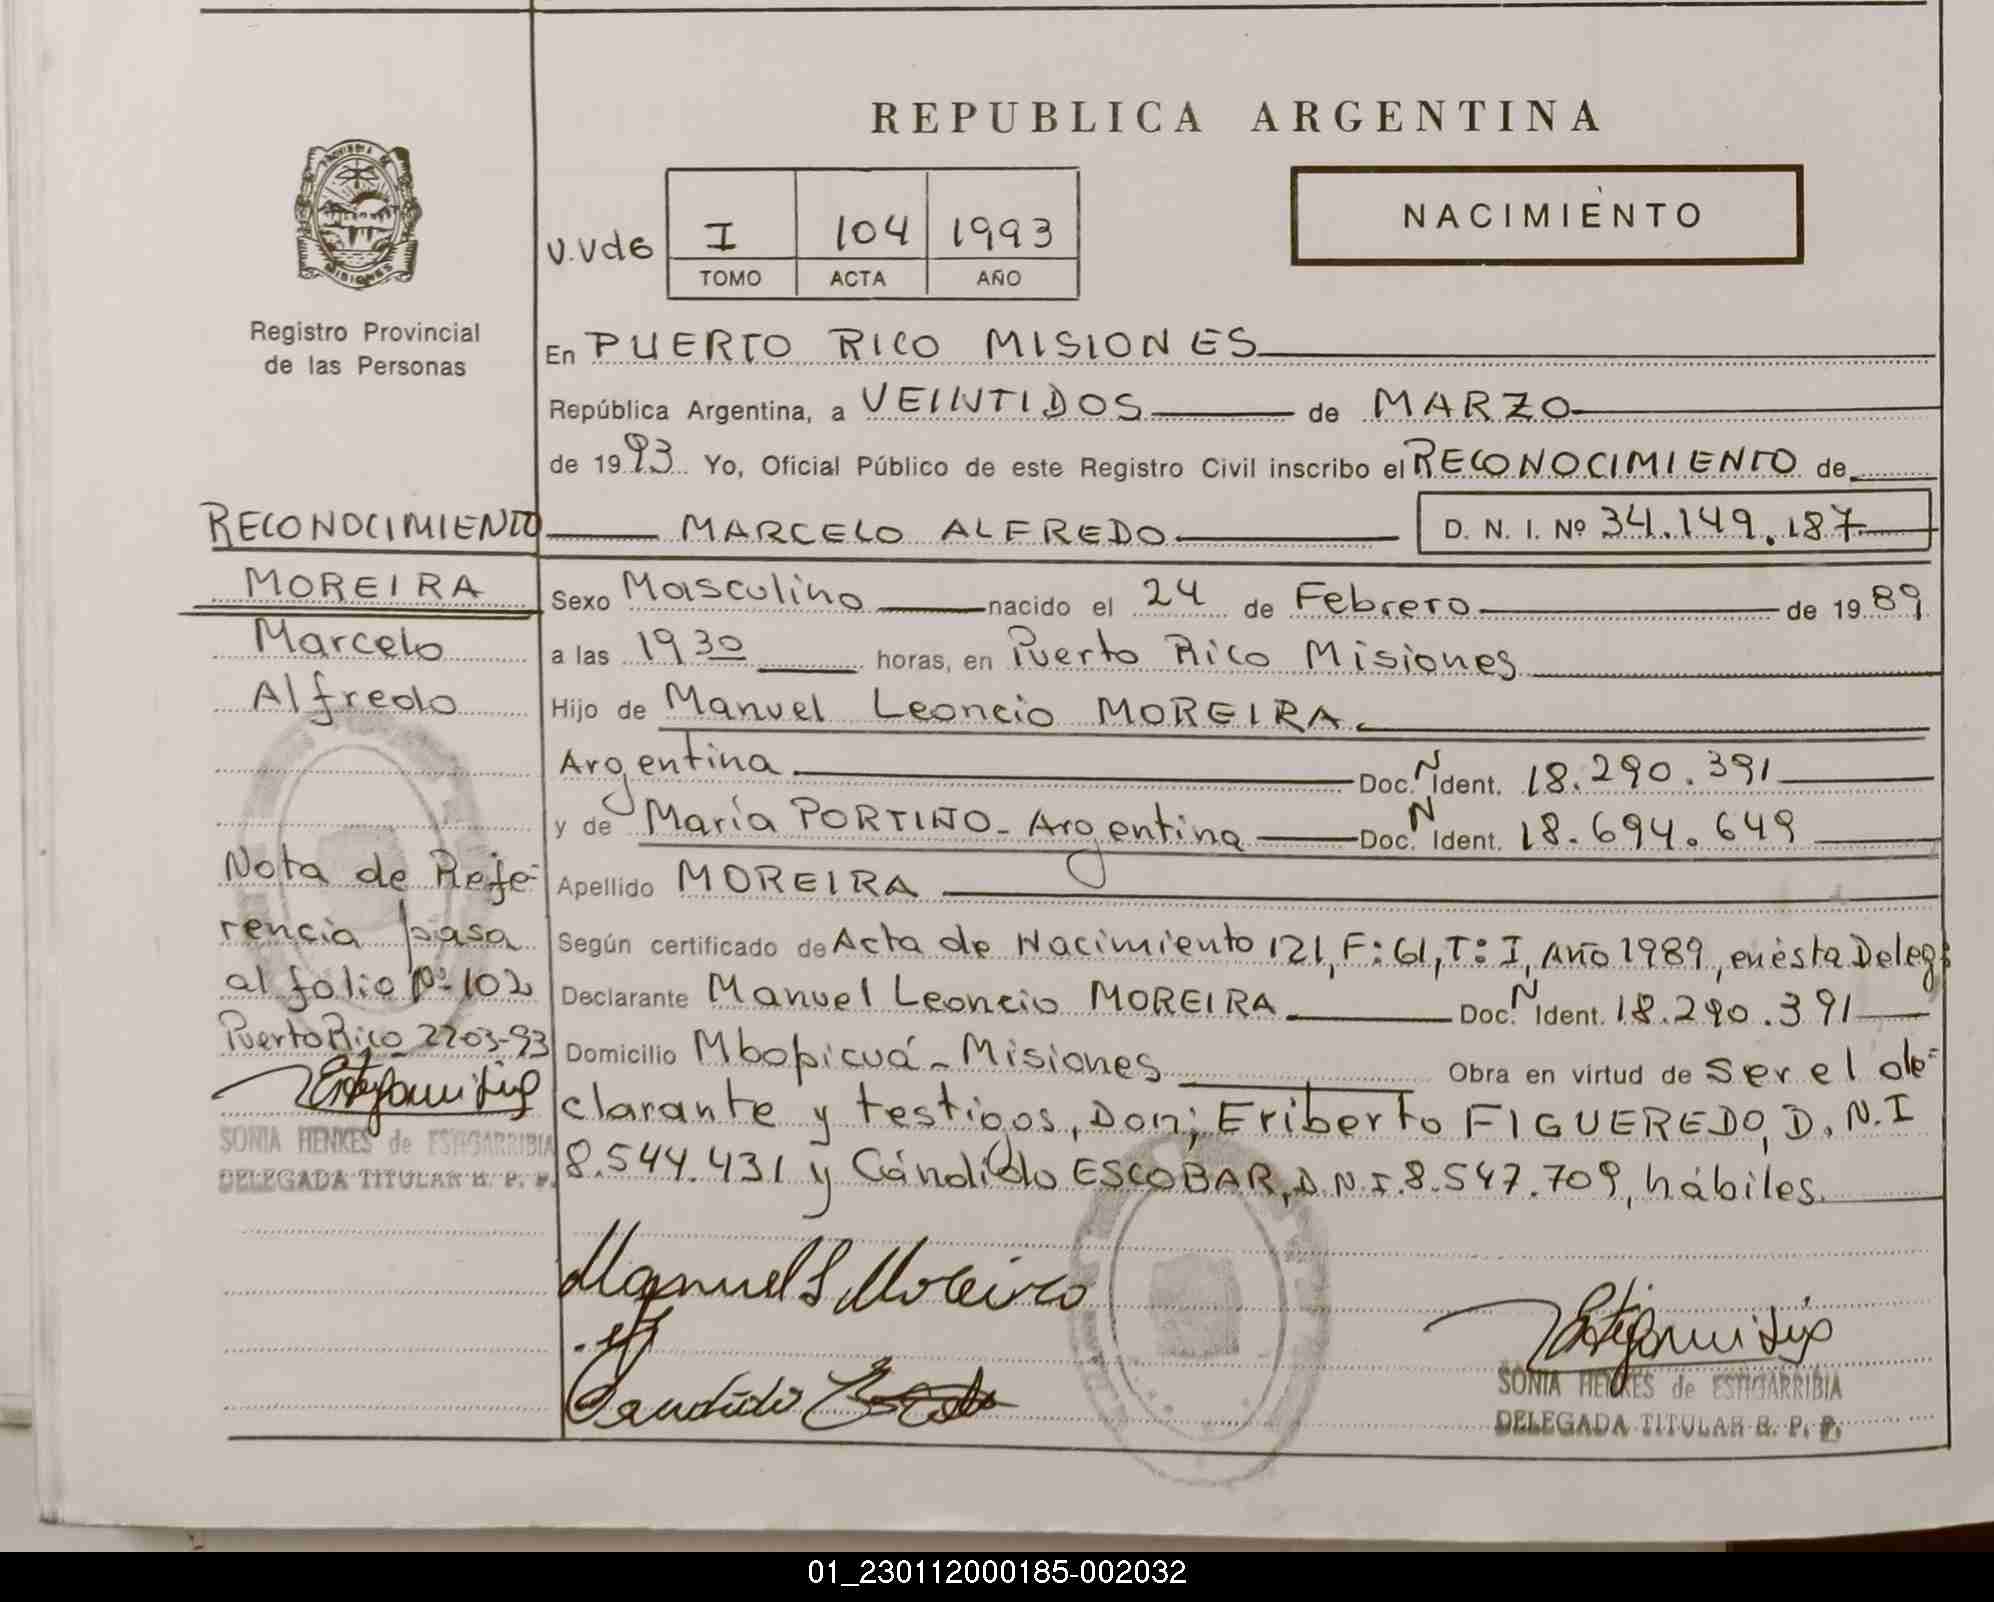 REPUBLICA ARGENTINA
NACIMIENTO
V.Vde I 104 1993
TOMO ACTA AÑO
MISIONES
Registro Provincial
de las Personas
En PUERTO RICO MISIONES
República Argentina, a VEINTIDOS de MARZO
de 1993 Yo, Oficial Público de este Registro Civil inscribo el RECONOCIMIENTO de
MARCELO ALFREDO D. N. I. Nº 34.149.187
Sexo Masculino nacido el 24 de Febrero de 1989
a las 1930 horas, en Puerto Rico Misiones
Hijo de Manuel Leoncio MOREIRA
Argentina Doc. N Ident. 18.290.391
y de María PORTINO - Argentina Doc. N Ident. 18.694.649
Apellido MOREIRA
Según certificado de Acta de Nacimiento 121, F: 61, T: I, Año 1989, en ésta Deleg:
Declarante Manuel Leoncio MOREIRA Doc. N Ident. 18.290.391
Domicilio Mbopicuá - Misiones Obra en virtud de ser el de=
clarante y testigos, Don; Eriberto FIGUEREDO, D.N.I
8.544.431 y Cándido ESCOBAR, D.N.I. 8.547.709, hábiles.
RECONOCIMIENTO
MOREIRA
Marcelo
Alfredo
Nota de Refe=
rencia pasa
al folio Nº 102
Puerto Rico 22-03-93
SONIA HENKES de ESTIGARRIBIA
DELEGADA TITULAR R. P. P.
Manuel L Moreira
Candido
SONIA HENKES de ESTIGARRIBIA
DELEGADA TITULAR R. P. P.
01_230112000185-002032